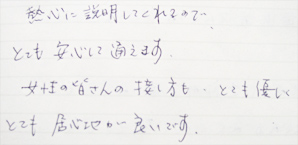 熱心に説明してくれるので、
とても安心して通えます。
女性の皆さんの接し方も、とても優しく
とても居心地が良いです。